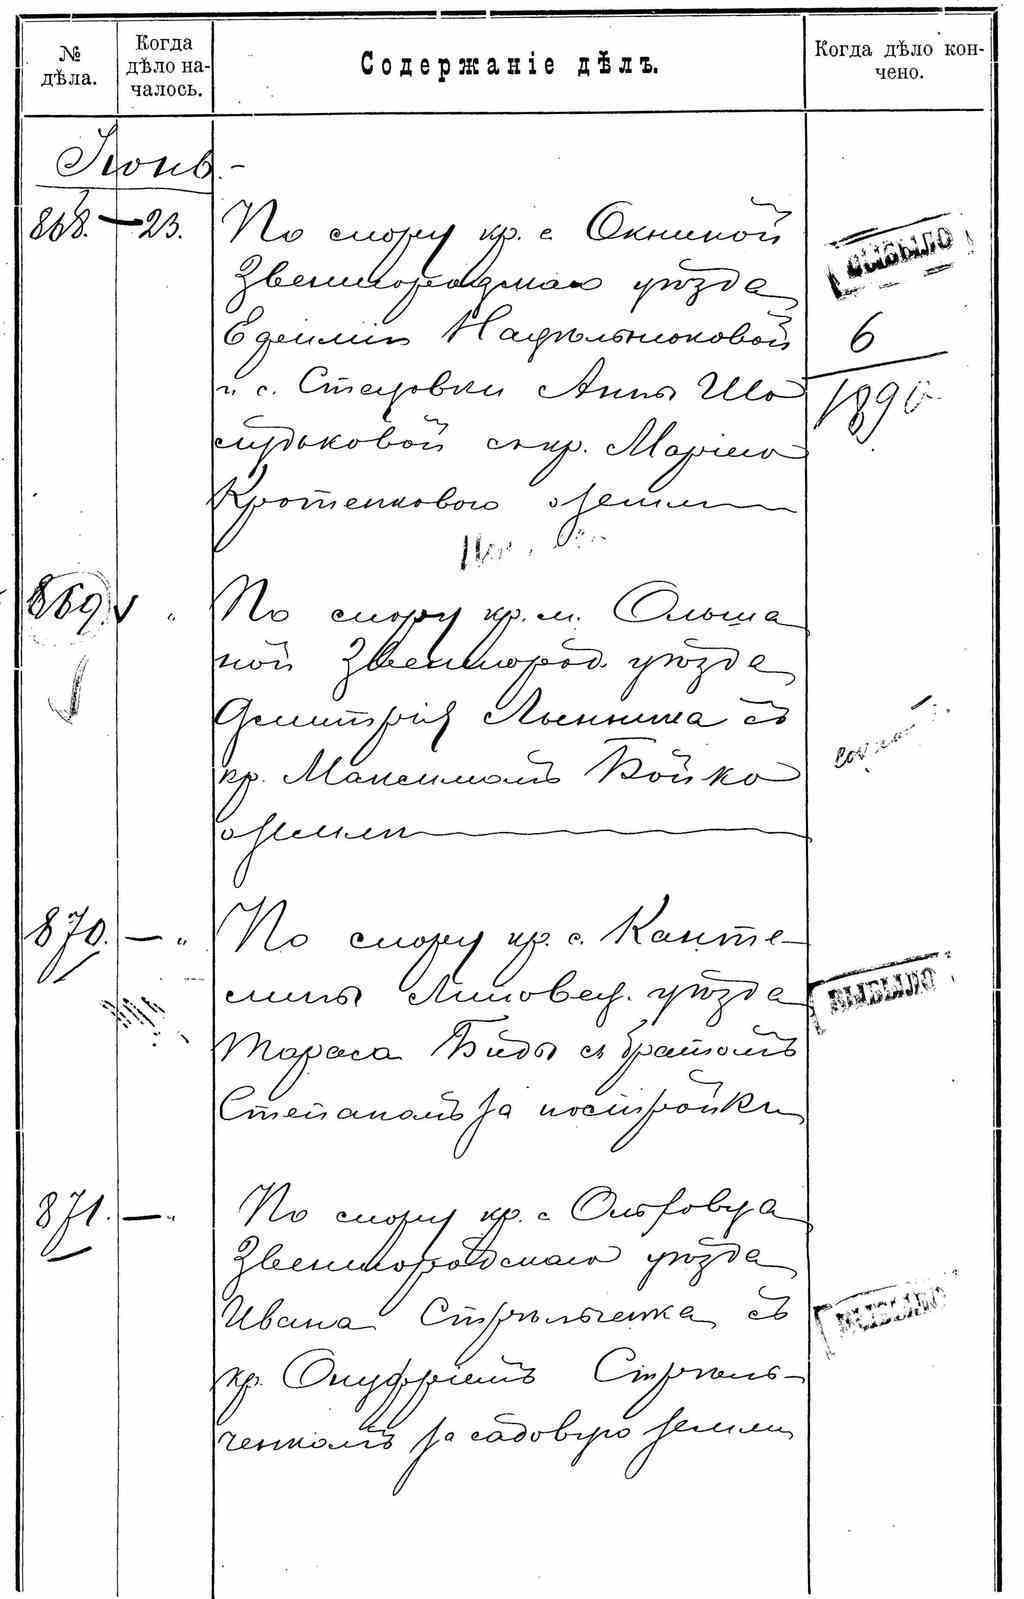 № дѣла.
Когда дѣло на-
чалось.
Содержаніе дѣлъ.
Когда дѣло кон-
чено.
Іюнь.-
868. — 23. По спору кр. с. Окниной
Звенигородскаго уѣзда
и с. Стецовки Анны Шо
съ кр. Маріею
Кротенковою о земл
ВЫБЫЛО
6
1890
869 V " По спору кр. м. Ольша
ной Звенигород. уѣзда
Дмитрія съ
кр. Максимомъ Бойко
о земли
870. — " По спору кр. с. Канте-
лины Липовец. уѣзда
Тараса Биды съ братомъ
Степаномъ за постройки
ВЫБЫЛО
871. — " По спору кр. с.
Звенигородскаго уѣзда
Ивана Стрѣльченка съ
кр. Онуфріемъ Стрѣль-
ченкомъ за садовую землю
ВЫБЫЛО